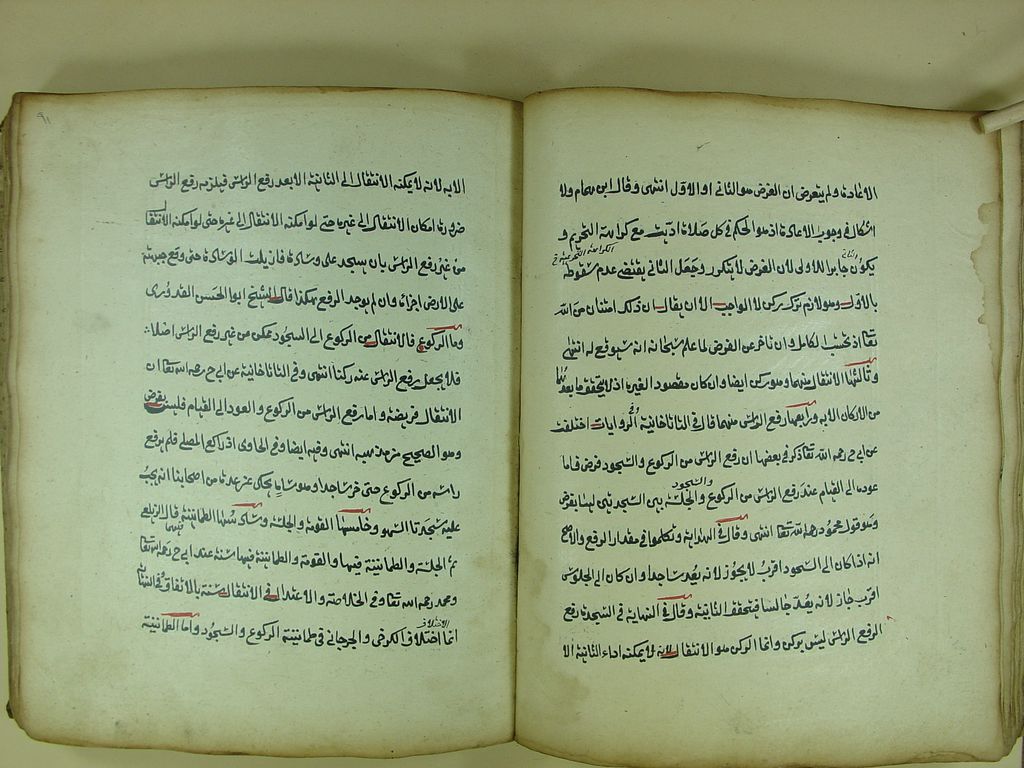 الاعادة ولم يتعرض ان الفرض هو الثاني او الاول انتهى وقال ابن همام ولا
اشكال في وجوب الاعادة اذ هو الحكم في كل صلاة اديت مع كراهة التحريم و
يكون جابرا للاول لان الفرض لا يتكرر وجعل الثاني يقتضي عدم سقوطه
بالاول وهو لازم ترك ركن لا الواجب الا ان يقال ان ذلك امتنان من الله
تعا اذ يحتسب الكامل وان تاخر عن الفرض لما علم سبحانه انه سيوقع له انتهى
وثالثها الانتقال منهما وهو ركن ايضا وان كان مقصود الغيره اذ لا يتحقق ما بعدهما
من الاركان الا به ورابعها رفع الراس منهما قال في التاتارخانية وفي الروايات اختلفت
عن ابي ح رحمه الله تعا ذكر في بعضها ان رفع الراس من الركوع والسجود فرض فاما
عوده الى القيام عند رفع الراس من الركوع والجلسة بين السجدتين ليسا بفرض
وهو قول محمد رحمه الله تعا انتهى وقال في الهداية وتكلموا في مقدار الرفع والاصح
انه اذا كان الى السجود اقرب لا يجوز لانه يعد ساجدا وان كان الى الجلوس
اقرب جاز لانه يعد جالسا فيتحقق الثانية وقال في النهاية في السجدة رفع
الرفع الراس ليس بركن وانما الركن هو الانتقال لانه لا يمكنه اداء الثانية الا
الا به لانه لا يمكنه الانتقال الى الثانية الا بعد رفع الراس فيلزمه رفع الراس
ضرورة امكان الانتقال الى غيره حتى لو امكنه الانتقال الى غيره حتى لو امكنه الانتقال
من غير رفع الراس بان يسجد على وسادة فازيلت الوسادة حتى وقع جبهته
على الارض اجزاه وان لم يوجد الرفع هكذا قال الشيخ ابو الحسن القدوري
وما الركوع فالانتقال من الركوع الى السجود ممكن من غير رفع الراس اصلا
فلا يجعل رفع الراس عنه ركنا انتهى وفي التاتارخانية عن ابي ح رحمه الله تعا ان
الانتقال فريضة واما رفع الراس من الركوع والعود الى القيام فليس بفرض
وهو الصحيح من مذهبه انتهى وفيه ايضا وفي الحاوي اذ ركع المصلي فلم يرفع
راسه من الركوع حتى خر ساجدا وهو ساهٍ يحكى عن عدة من اصحابنا انه يجب
عليه سجدتا السهو وخامسها القومة والجلسة وسادسها الطمانينة قال الزيلعي
ثم الجلسة والطمانينة فيها والقومة والطمانينة فيها سنة عند ابي ح رحمه الله تعا
ومحمد رحمه الله تعا وفي الخلاصة والاعتدال في الانتقال سنة بالاتفاق
انما اختلاف الكرخي والجرجاني في طمانينة الركوع والسجود واما الطمانينة